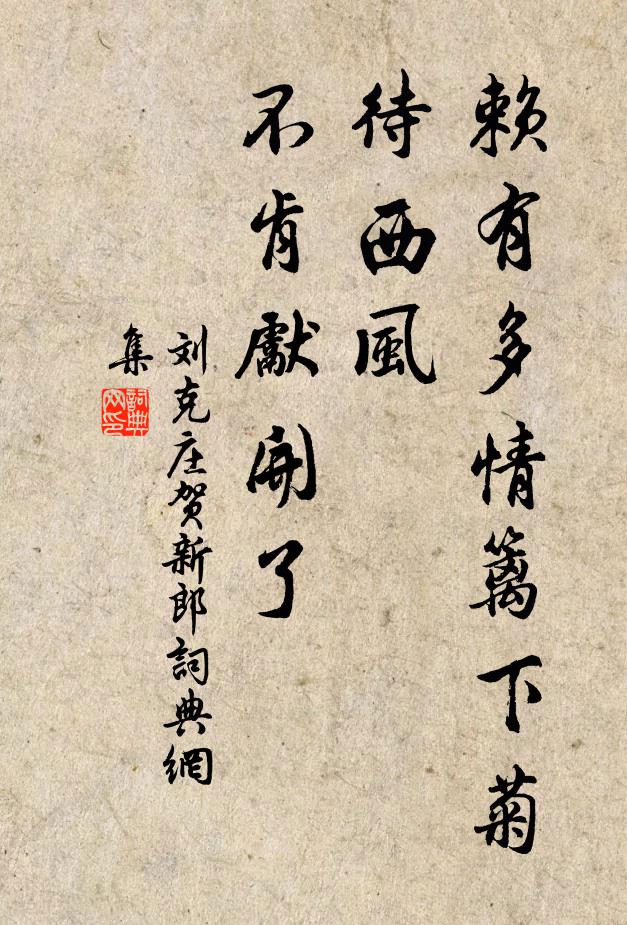 賴有多情籬下菊
待西風
不肯獻開了
刘克庄贺新郎詞典網
集
詞典
网印